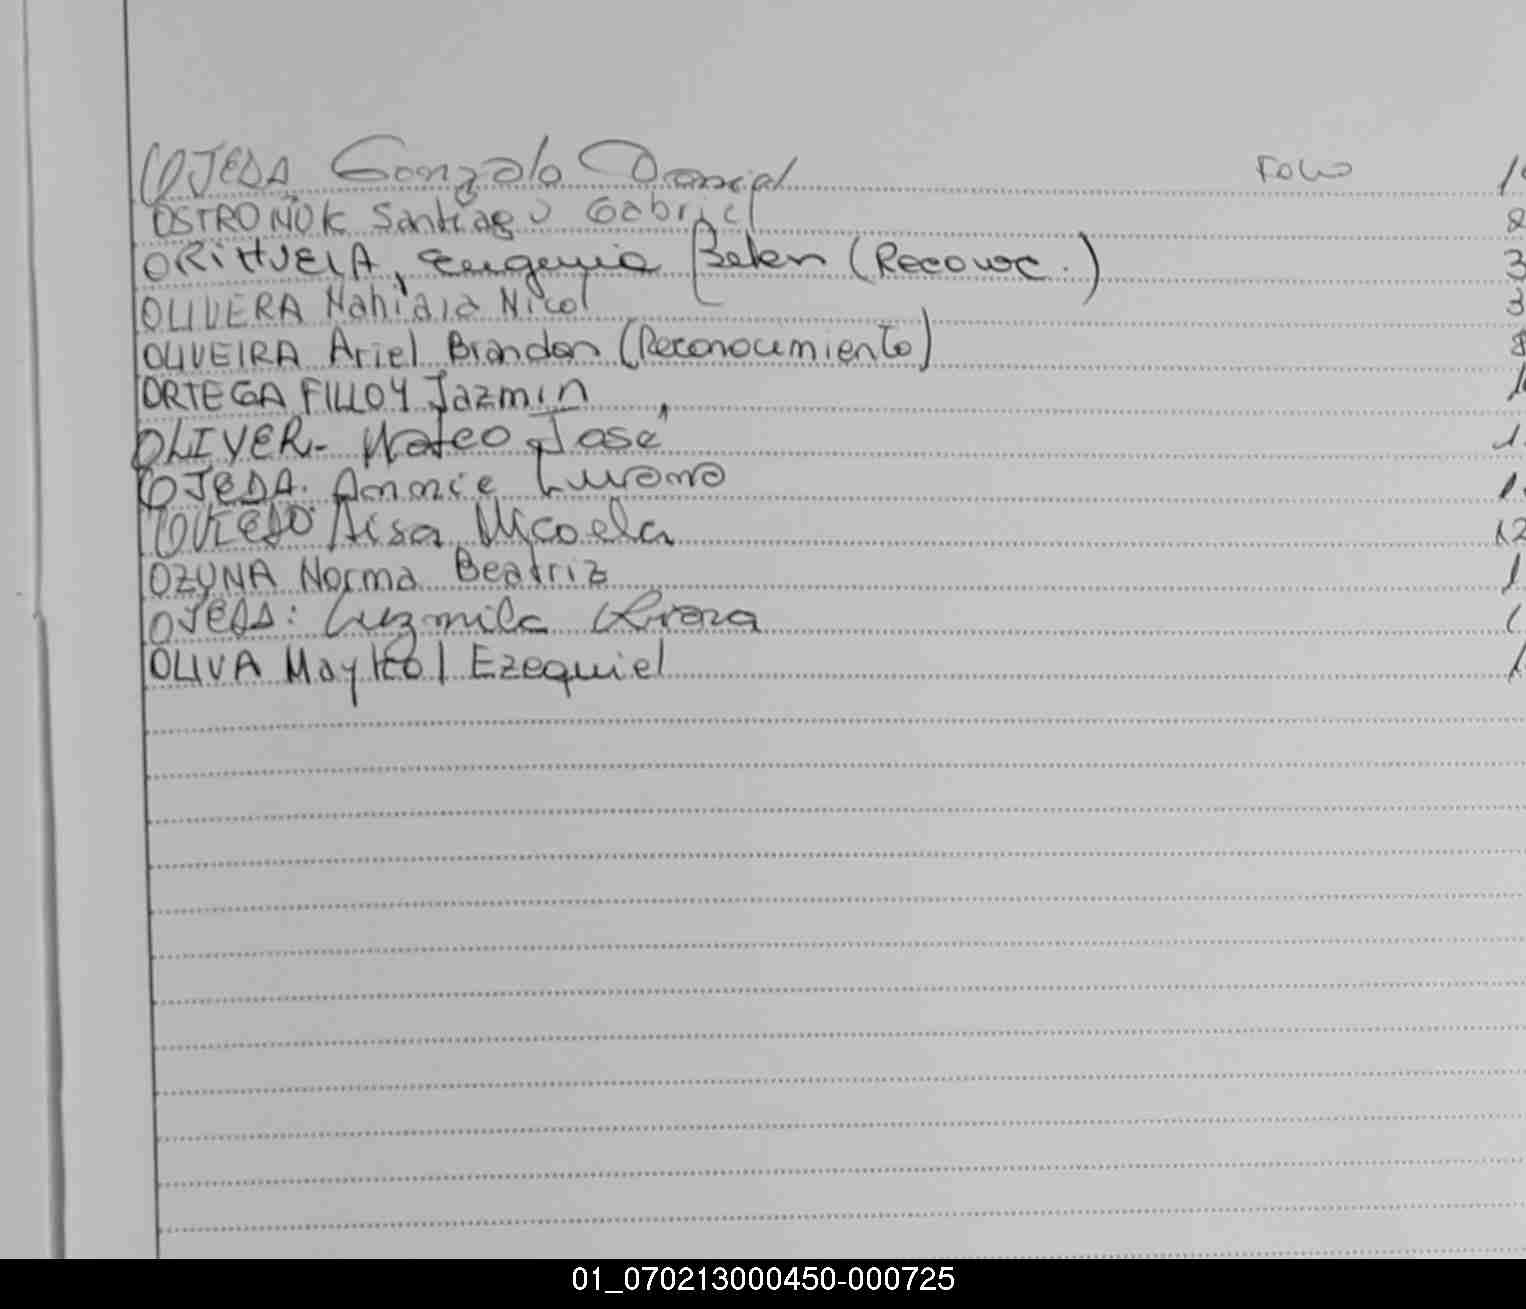 OJEDA Gonzalo Daniel Folio 1
OSTROÑUK Santiago Gabriel 2
ORIHUELA, Eugenia Belen (Reconoc.) 3
OLIVERA Nahiara Nicol 3
OLIVEIRA Ariel Brandon (Reconocimiento) 8
ORTEGA FILLOY Jazmin 1
OLIVER- Mateo José 1
OJEDA. Annie Lurana 1
OVIEDO Aisa Micaela 12
OZUNA Norma Beatriz 1
OJEDA: Luzmila
OLIVA Maykol Ezequiel 1
01_070213000450-000725